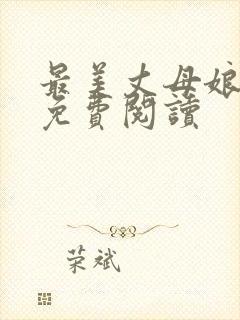 最美丈母娘
免費閱讀
荣斌